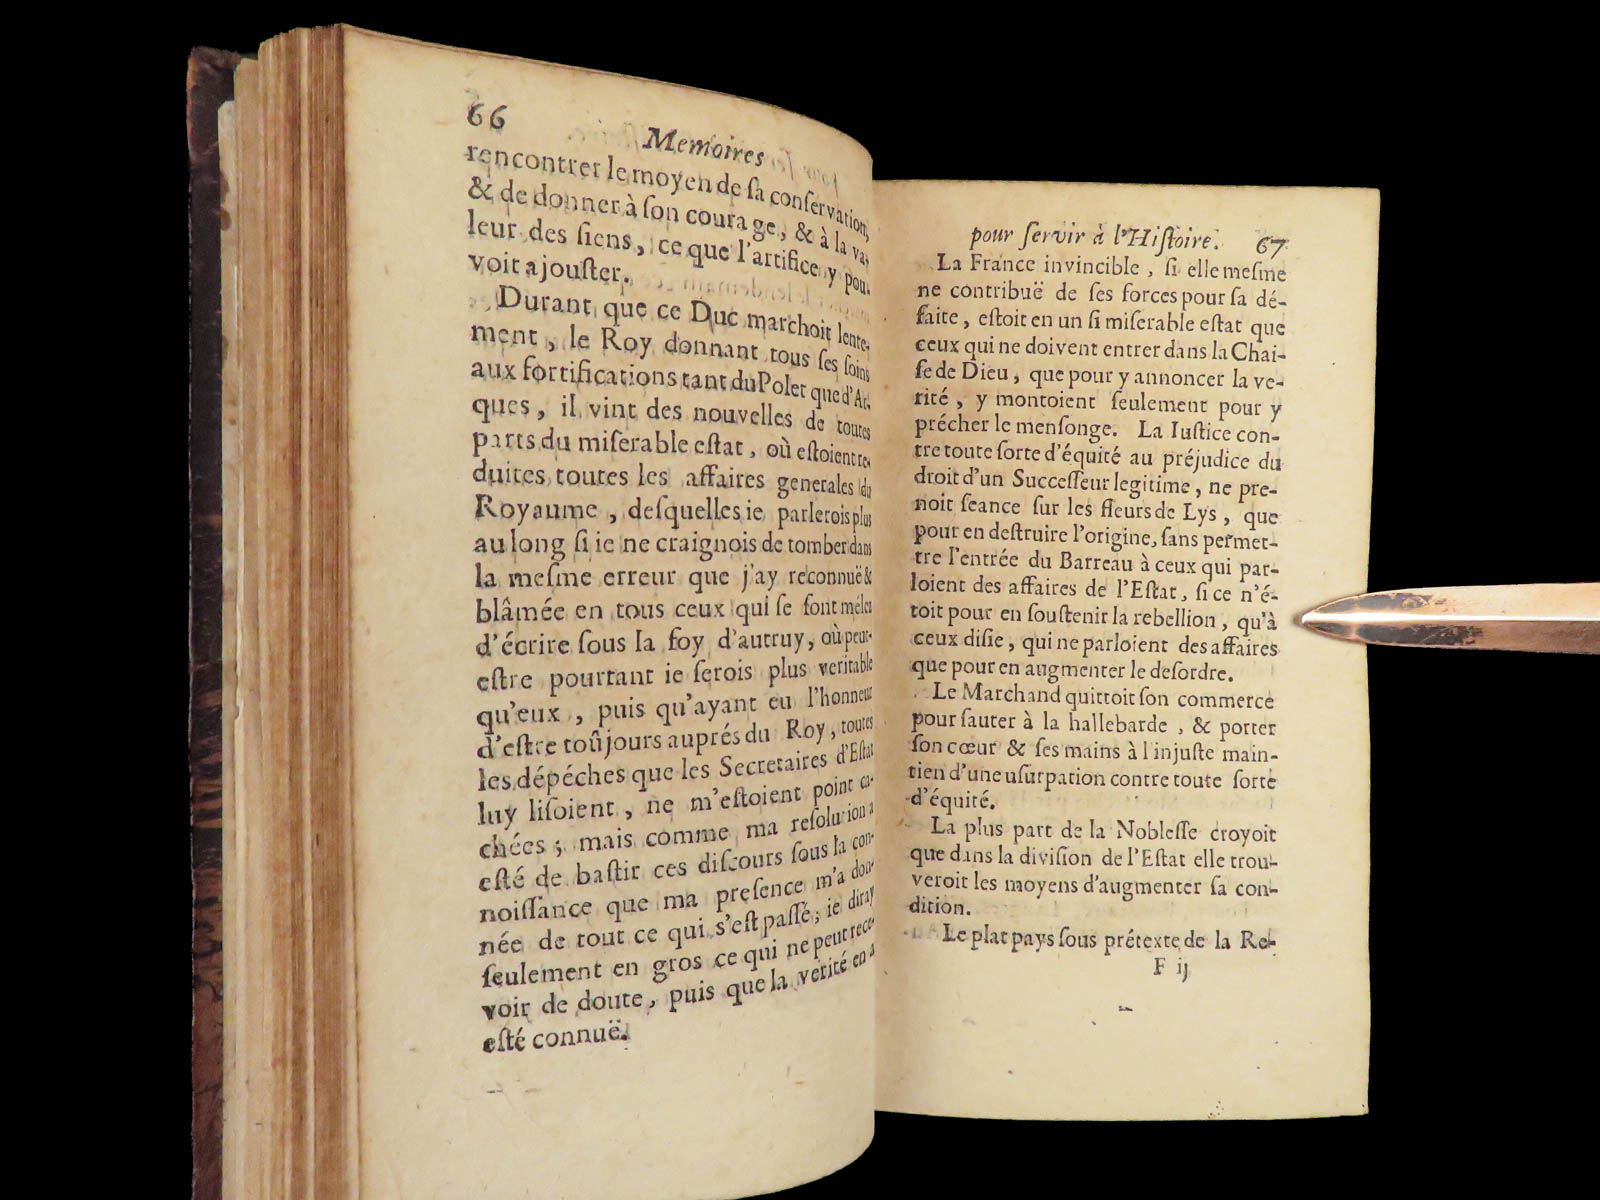 66
Memoires
rencontrer le moyen de sa conſervation,
& de donner à ſon courage, & à la va-
leur des ſiens, ce que l'artifice y pou-
voit ajouſter.
Durant que ce Duc marchoit lente-
ment, le Roy donnant tous ſes ſoins
aux fortifications tant du Polet que d'Ar-
ques, il vint des nouvelles de toutes
parts du miſerable eſtat, où eſtoient re-
duites toutes les affaires generales du
Royaume, deſquelles ie parlerois plus
au long ſi ie ne craignois de tomber dans
la meſme erreur que j'ay reconnuë &
blâmée en tous ceux qui ſe ſont méles
d'écrire ſous la foy d'autruy, où peut-
eſtre pourtant ie ſerois plus veritable
qu'eux, puis qu'ayant eu l'honneur
d'eſtre toûjours auprés du Roy, toutes
les dépéches que les Secretaires d'Eſtat
luy liſoient, ne m'eſtoient point ca-
chées; mais comme ma reſolution a
eſté de baſtir ces diſcours ſous la con-
noiſſance que ma preſence m'a don-
née de tout ce qui s'eſt paſſé, ie diray
ſeulement en gros ce qui ne peut rece-
voir de doute, puis que la verité en a
eſté connuë.
pour ſervir à l'Hiſtoire. 67
La France invincible, ſi elle meſme
ne contribuë de ſes forces pour ſa dé-
faite, eſtoit en un ſi miſerable eſtat que
ceux qui ne doivent entrer dans la Chai-
ſe de Dieu, que pour y annoncer la ve-
rité, y montoient ſeulement pour y
précher le menſonge. La Iuſtice con-
tre toute ſorte d'équité au préjudice du
droit d'un Succeſſeur legitime, ne pre-
noit ſeance ſur les fleurs de Lys, que
pour en deſtruire l'origine, ſans permet-
tre l'entrée du Barreau à ceux qui par-
loient des affaires de l'Eſtat, ſi ce n'é-
toit pour en ſouſtenir la rebellion, qu'à
ceux diſie, qui ne parloient des affaires
que pour en augmenter le deſordre.
Le Marchand quittoit ſon commerce
pour ſauter à la hallebarde, & porter
ſon cœur & ſes mains à l'injuſte main-
tien d'une uſurpation contre toute ſorte
d'équité.
La plus part de la Nobleſſe croyoit
que dans la diviſion de l'Eſtat elle trou-
veroit les moyens d'augmenter ſa con-
dition.
Le plat pays ſous prétexte de la Re-
F ij